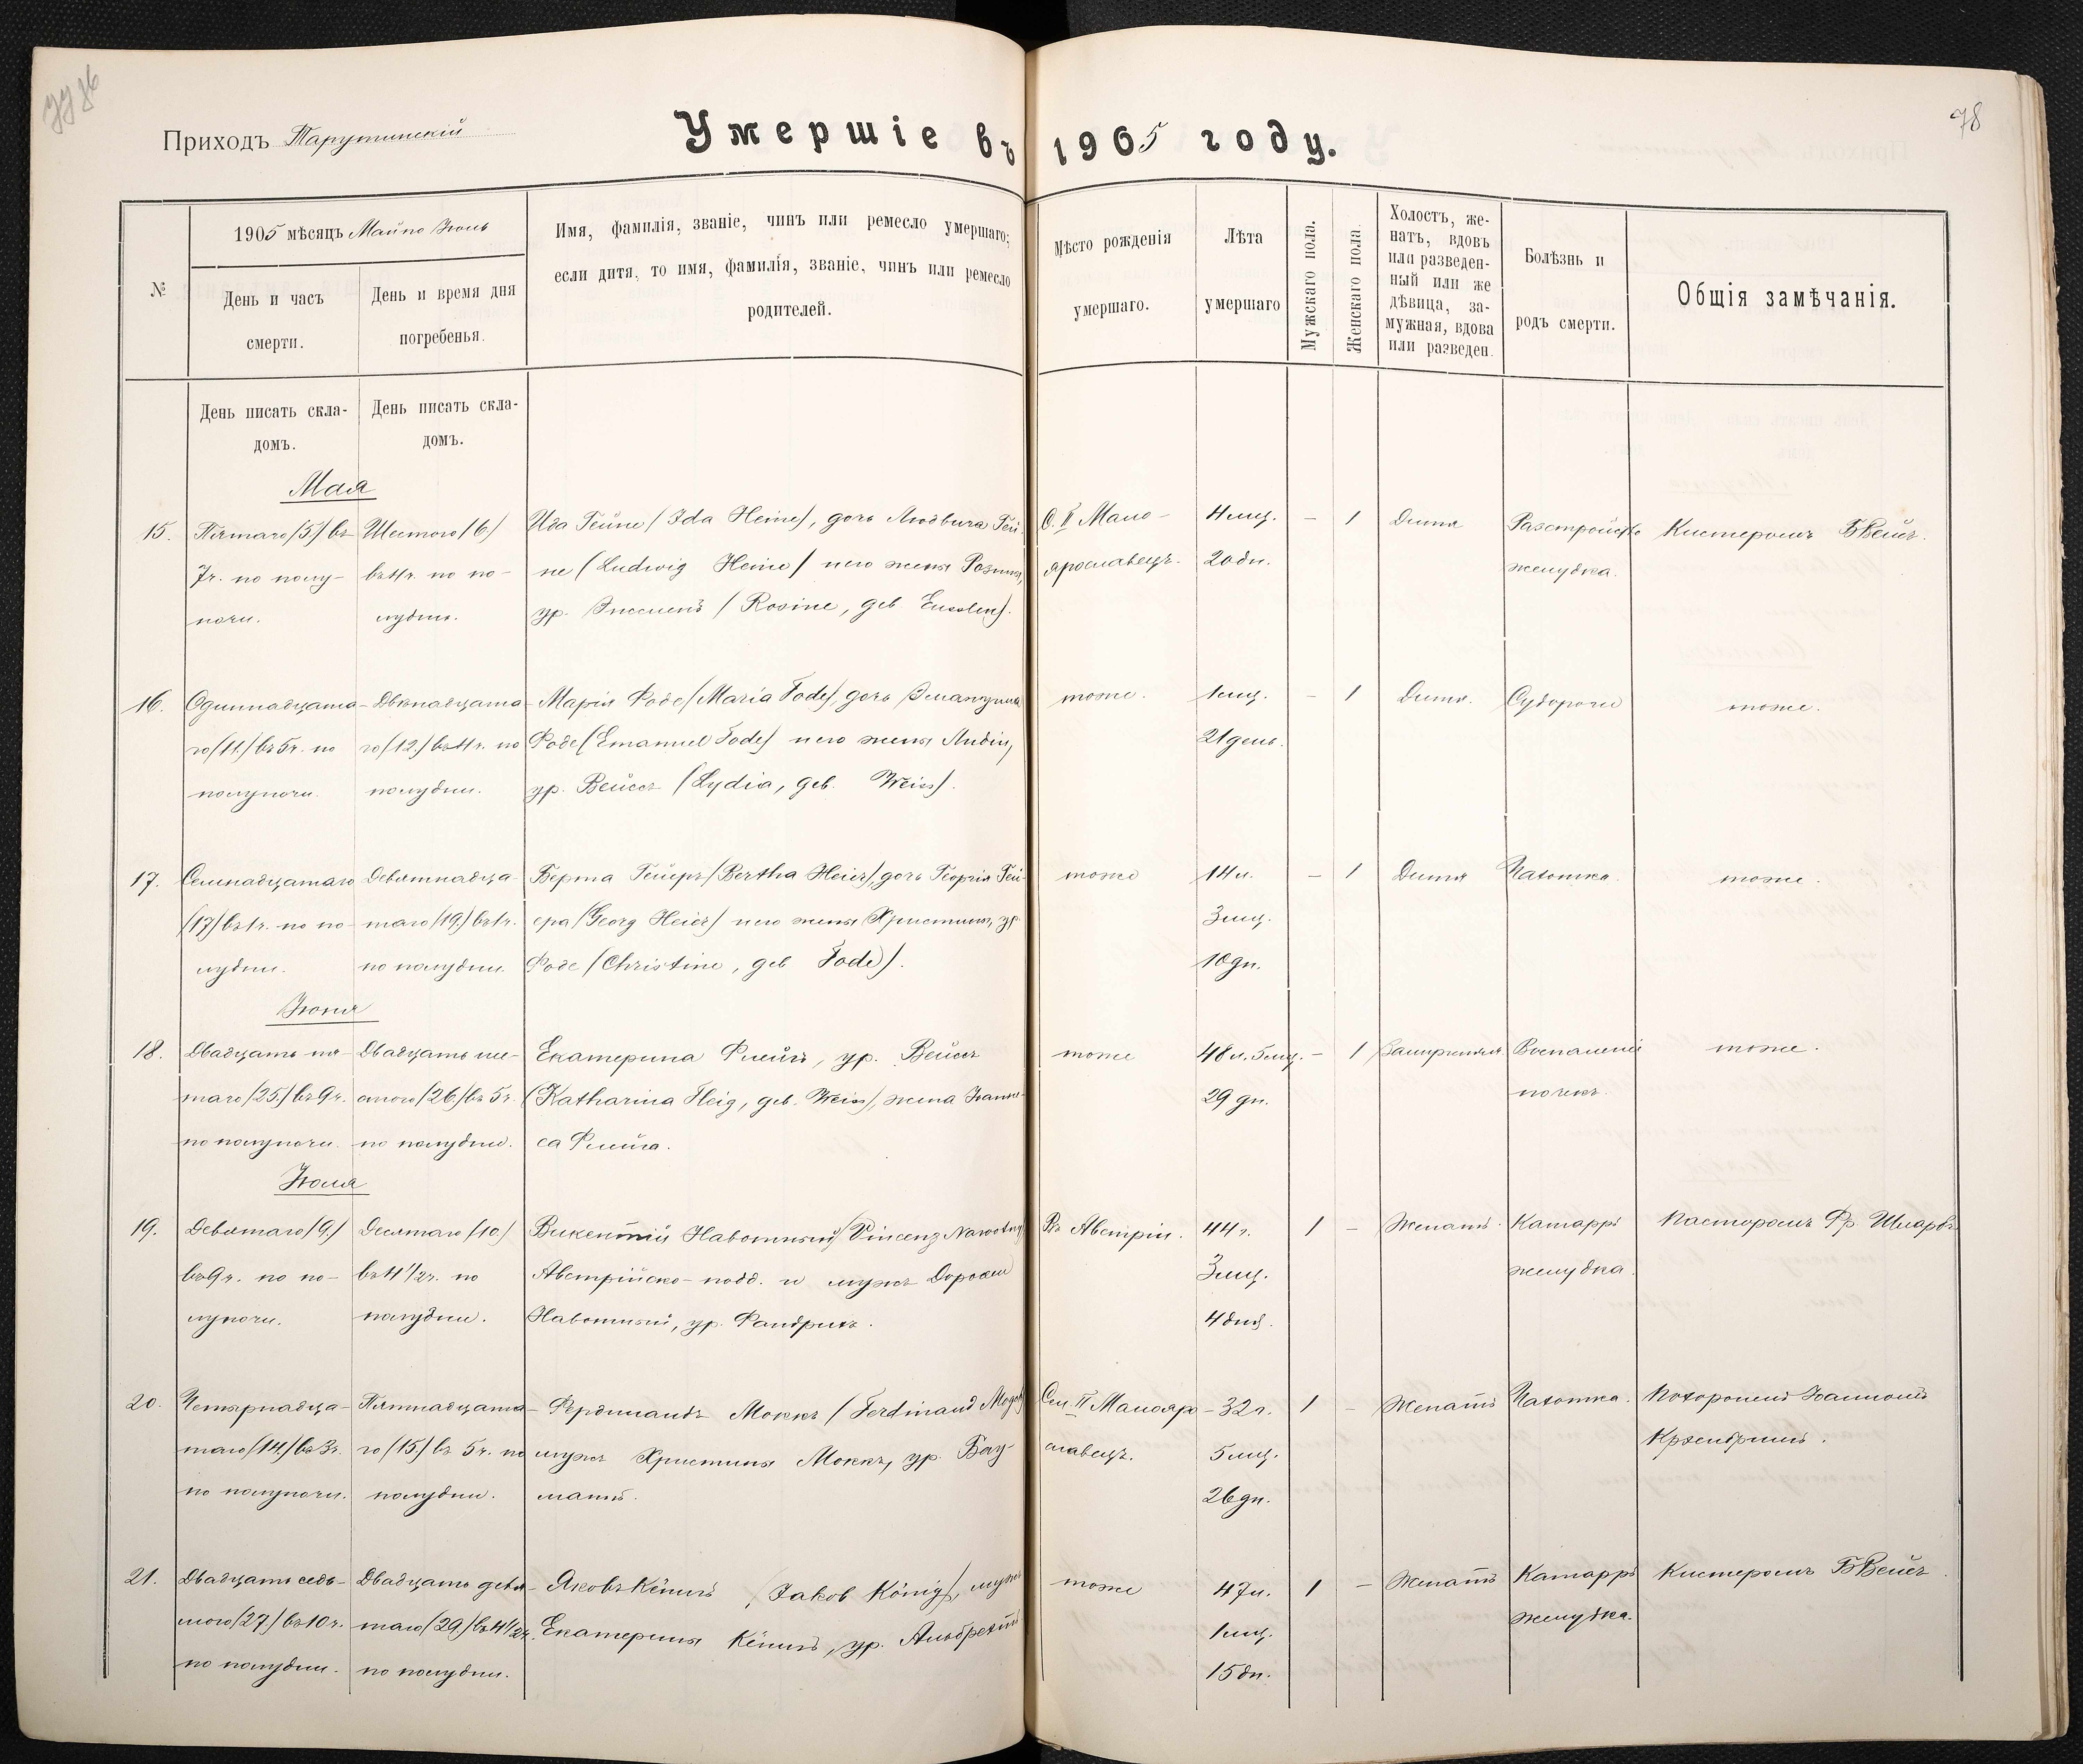 78
Приходъ Тарутинскій
Умершіе въ 1905 году.
№
1905 мѣсяцъ Май по Іюль
День и часъ
смерти.
День и время дня
погребенья.
Имя, фамилія, званіе, чинъ или ремесло умершаго;
если дитя, то имя, фамилія, званіе, чинъ или ремесло
родителей.
Мѣсто рожденія
умершаго.
Лѣта
умершаго
Мужскаго пола.
Женскаго пола.
Холостъ, же-
натъ, вдовъ
или разведен-
ный или же
дѣвица, за-
мужная, вдова
или разведен.
Болѣзнь и
родъ смерти.
Общія замѣчанія.
День писать скла-
домъ.
День писать скла-
домъ.
Мая
15.
Пятаго /5./ въ
7 ч. по полу-
ночи.
Шестого /6/
въ 4 ч. по по-
лудни.
Ида Гейне / Ida Heine/, дочь Людвига Гей-
не / Ludwig Heine / и его жены Розины,
ур. Энсленъ / Rosine, geb. Ensslen/.
С. II Мало-
ярославецъ.
4 мц.
20 дн.
–
1
Дитя
Разстройство
желудка.
Кистеромъ Б Вейсъ.
16.
Одиннадцата-
го /11./ въ 5 ч. по
полуночи.
Двѣнадцата-
го /12./ въ 4 ч. по
полудни.
Марія Фоде / Maria Fode/, дочь Эмануила
Фоде / Emanuel Fode/ и его жены Лидіи,
ур. Вейссъ / Lydia, geb. Weiss/.
тоже.
1 мц.
21 день.
–
1
Дитя.
Судороги
тоже.
17.
Семнадцатаго
/17/ въ 1 ч. по по-
лудни.
Девятнадца-
таго /19./ въ 1 ч.
по полудни.
Берта Гейеръ / Bertha Heier/, дочь Георгія Гей-
ера / Georg Heier/ и его жены Христины, ур.
Фоде / Christine, geb Fode/.
тоже
14 л.
3 мц.
10 дн.
–
1
Дитя
Чахотка.
тоже.
Іюня
18.
Двадцать пя-
таго /25./ въ 9 ч.
по полуночи.
Двадцать ше-
стого /26./ въ 5 ч.
по полудни.
Екатерина Флейгъ, ур. Вейссъ
/Katharina Fleig, geb. Weiss/, жена Іоанне-
са Флейга.
тоже
48 л. 5 мц.
29 дн.
–
1
Замужняя
Воспаленіе
почекъ.
тоже.
Іюля
19.
Девятаго /9./
въ 9 ч. по по-
луночи.
Десятаго /10./
въ 4 1/2 ч. по
полудни.
Викентій Навотный / Vincenz Nawotny/
Австрійско-подд. и мужъ Доротеи
Навотный, ур. Фандрихъ.
Въ Австріи.
44 г.
3 мц.
4 дня.
1
–
Женатъ.
Катарръ
желудка.
Пасторомъ Фр. Шларбъ
20.
Четырнадца-
таго /14./ въ 3 ч.
по полуночи.
Пятнадцата-
го /15./ въ 5 ч. по
полудни.
Фердинандъ Моккъ / Ferdinand
мужъ Христины Моккъ, ур. Бау-
манъ.
Сел. II Малояро-
славецъ.
32 г.
5 мц.
26 дн.
1
–
Женатъ
Чахотка.
Похороненъ Іоанномъ
21.
Двадцать седь-
мого /27/ въ 10 ч.
по полудни.
Двадцать девя-
таго /29/ въ 4 1/2 ч.
по полудни.
Яковъ Кёнигъ / Jakob König/, мужъ
Екатерины Кёнигъ, ур. Альбрехтъ
тоже
47 л.
1 мц.
15 дн.
1
–
Женатъ
Катарръ
желудка.
Кистеромъ Б Вейсъ.